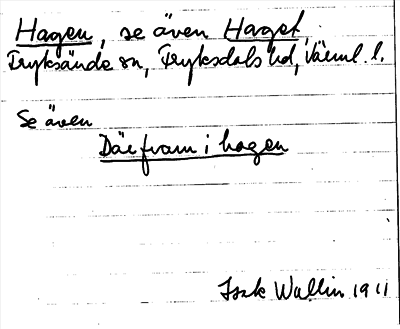 Hagen, se även Haget
Fryksände sn, Fryksdals hd, Värml. l.
Se även
Där fram i hagen
Isak Wallin 1911